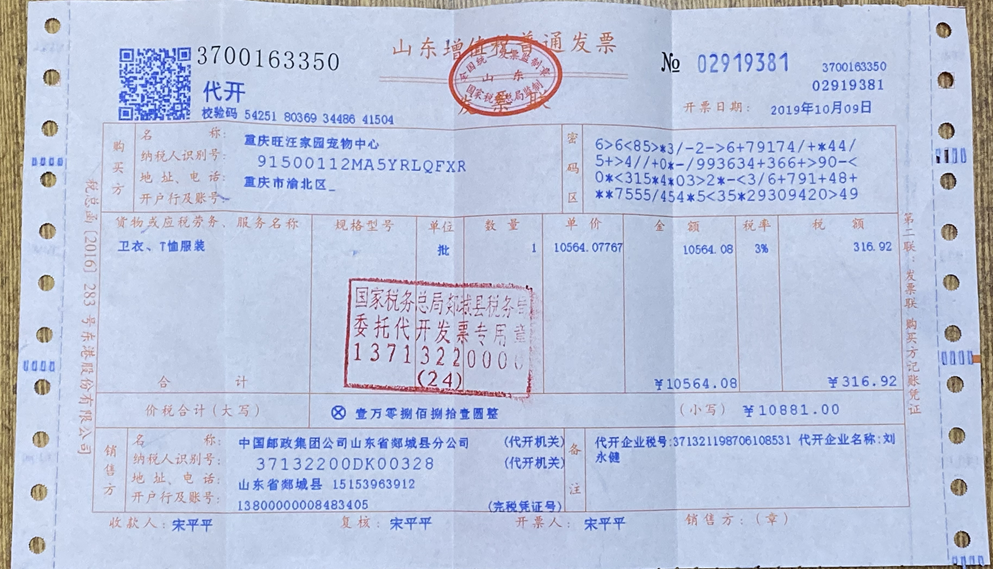 山东增值税普通发票
3700163350
№ 02919381
3700163350
02919381
代开
发票联
全国统一发票监制章
山东
国家税务总局监制
校验码 54251 80369 34486 41504
开票日期: 2019年10月09日
购买方
名 称: 重庆旺汪家园宠物中心
纳税人识别号: 91500112MA5YRLQFXR
地址、电话: 重庆市渝北区_
开户行及账号:
密码区
6>6<85>*3/-2->6+79174/+*44/
5+>4//+0*-/993634+366+>90-<
0*<315*4*03>2*-<3/6+791+48+
**7555/454*5<35*29309420>49
货物或应税劳务、服务名称 规格型号 单位 数量 单价 金额 税率 税额
卫衣、T恤服装 批 1 10564.07767 10564.08 3% 316.92
国家税务总局郯城县税务局
委托代开发票专用章
1371322000
(24)
合计 ¥10564.08 ¥316.92
价税合计(大写) ⊗ 壹万零捌佰捌拾壹圆整 (小写) ¥10881.00
销售方
名 称: 中国邮政集团公司山东省郯城县分公司 (代开机关)
纳税人识别号: 37132200DK00328 (代开机关)
地址、电话: 山东省郯城县 15153963912
开户行及账号: 13800000008483405 (完税凭证号)
备注
代开企业税号:371321198706108531 代开企业名称:刘
永健
收款人: 宋平平 复核: 宋平平 开票人: 宋平平 销售方:(章)
税总函〔2016〕283号东港股份有限公司
第二联:发票联 购买方记账凭证